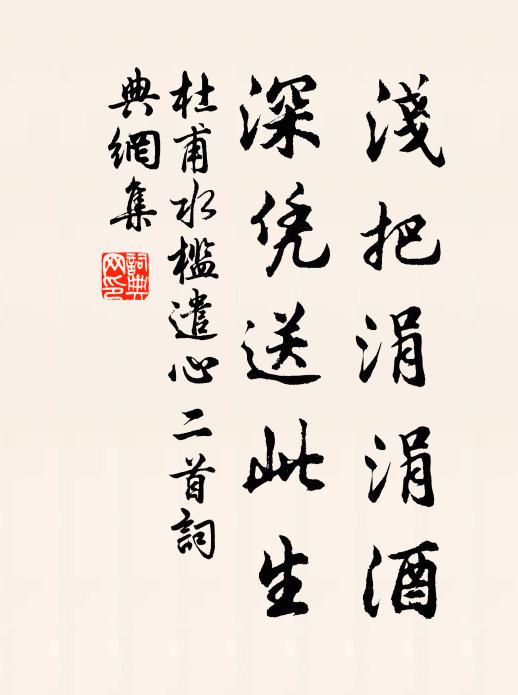 淺把涓涓酒
深凭送此生
杜甫水檻遣心二首詞
典網集
詞典
网印